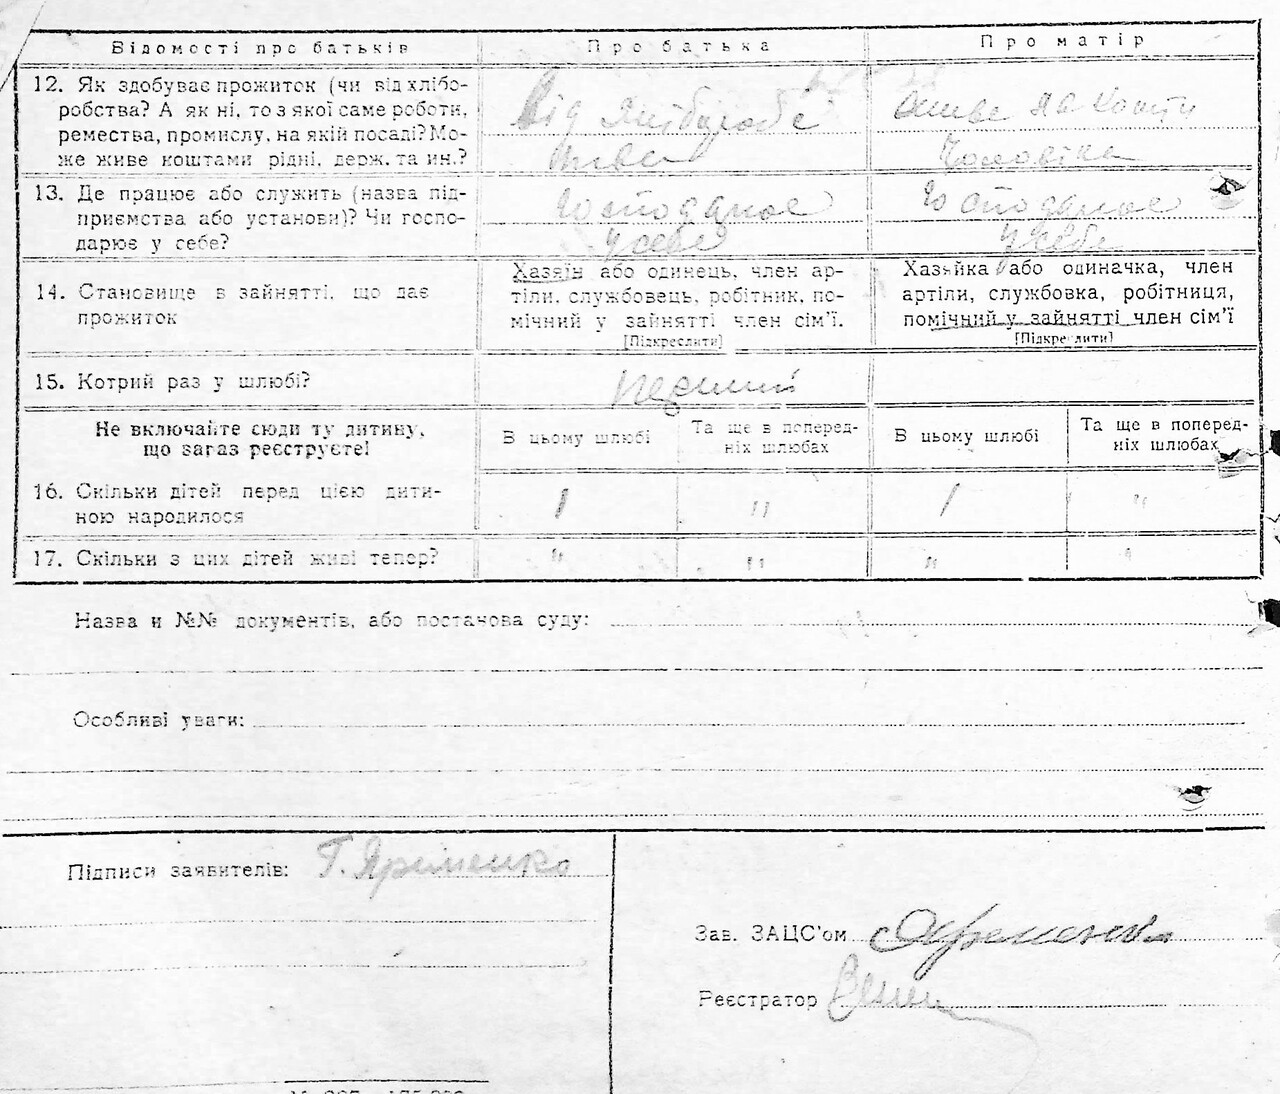 Відомості про батьків
Про батька
Про матір
12. Як здобуває прожиток (чи від хлібо-
робства? А як ні, то з якої саме роботи,
ремества, промислу, на якій посаді? Мо-
же живе коштами рідні, держ. та ин.?
Від
живе
живе на кошти
чоловіка
13. Де працює або служить (назва під-
приємства або установи)? Чи госпо-
дарює у себе?
господарює
у себе
господарює
у себе
14. Становище в зайнятті, що дає
прожиток
Хазяїн або одинець, член ар-
тіли, службовець, робітник, по-
мічний у зайнятті член сім'ї.
[Підкреслити]
Хазяйка або одиначка, член
артіли, службовка, робітниця,
помічний у зайнятті член сім'ї
[Підкреслити]
15. Котрий раз у шлюбі?
перший
Не включайте сюди ту дитину,
що зараз реєструєте!
В цьому шлюбі
Та ще в поперед-
ніх шлюбах
В цьому шлюбі
Та ще в поперед-
ніх шлюбах
16. Скільки дітей перед цією дити-
ною народилося
1 " 1 "
17. Скільки з цих дітей живі тепер?
" " " "
Назва и №№ документів, або постанова суду:
Особливі уваги:
Підписи заявителів: Г. Яременко
Зав. ЗАЦС'ом Яременко
Реєстратор